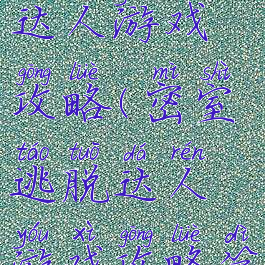 达人游戏
gōng lüè mì shì
攻略(密室
táo tuō dá rén
逃脱达人
yóu xì gōng lüè dì
游戏攻略